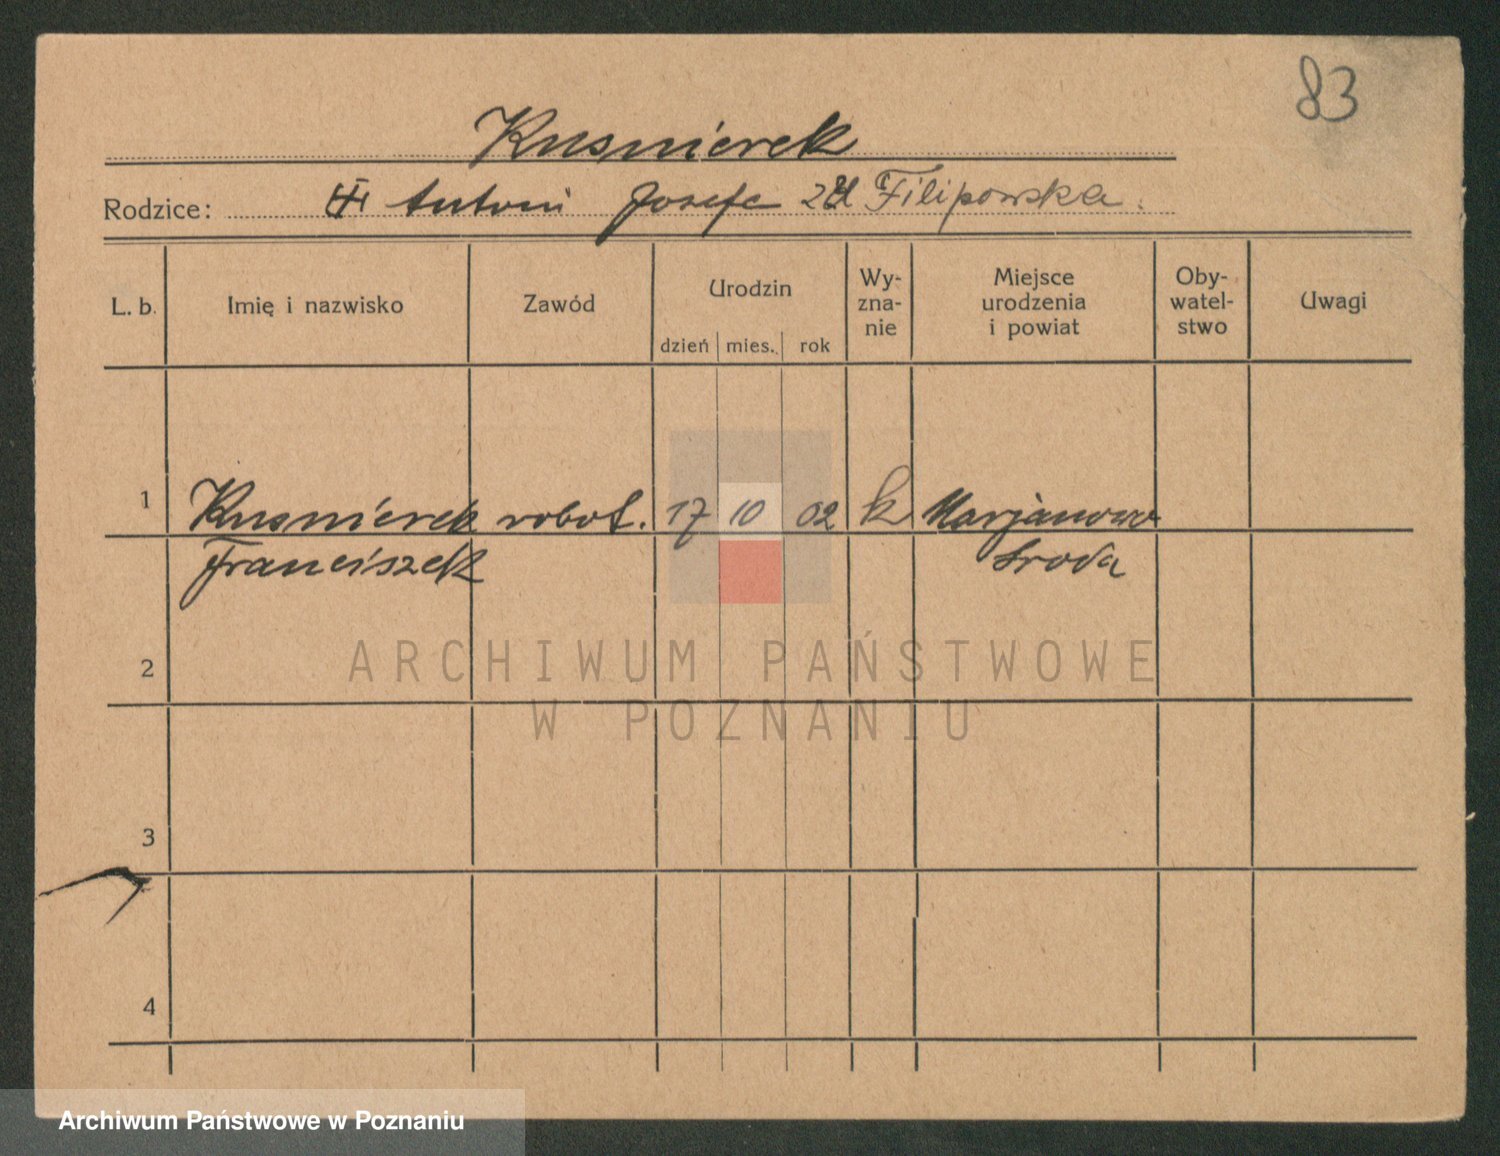 83
Kusmierek
Rodzice: Antoni Josefa zd Filipowska.
L. b. Imię i nazwisko Zawód Urodzin dzień mies. rok Wy-zna-nie Miejsce urodzenia i powiat Oby-watel-stwo Uwagi
1 Kusmierek robot. 17 10 02 k Marjanowo
Franciszek Sroda
2
ARCHIWUM PAŃSTWOWE
W POZNANIU
3
4
Archiwum Państwowe w Poznaniu